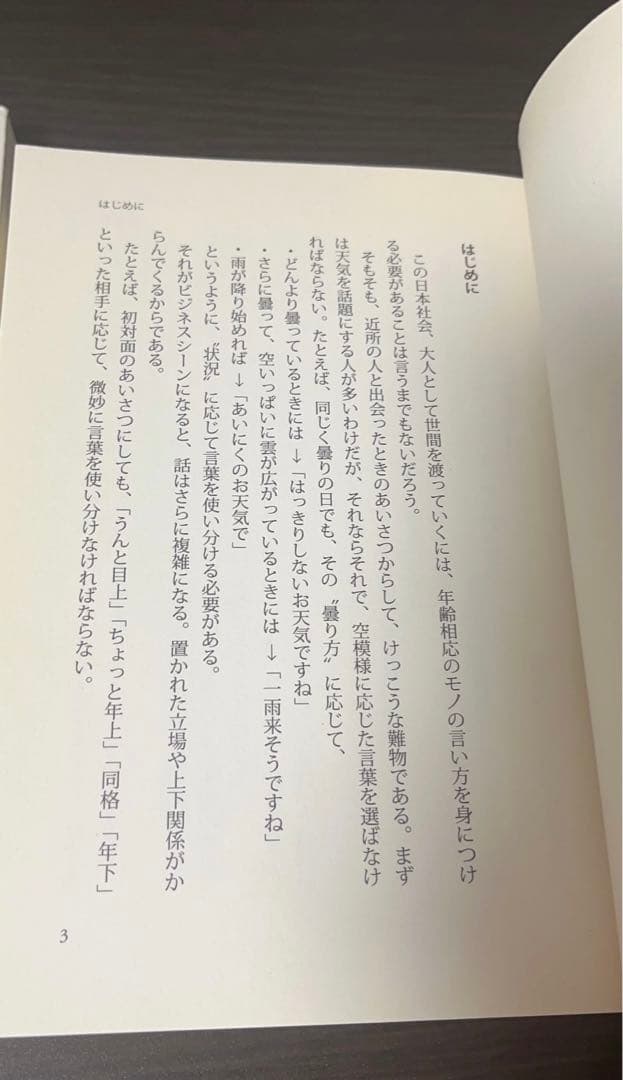 はじめに
はじめに
この日本社会、大人として世間を渡っていくには、年齢相応のモノの言い方を身につけ
る必要があることは言うまでもないだろう。
そもそも、近所の人と出会ったときのあいさつからして、けっこうな難物である。まず
は天気を話題にする人が多いわけだが、それならそれで、空模様に応じた言葉を選ばなけ
ればならない。たとえば、同じく曇りの日でも、その〝曇り方〟に応じて、
・どんより曇っているときには→「はっきりしないお天気ですね」
・さらに曇って、空いっぱいに雲が広がっているときには→「一雨来そうですね」
・雨が降り始めれば→「あいにくのお天気で」
というように、〝状況〟に応じて言葉を使い分ける必要がある。
それがビジネスシーンになると、話はさらに複雑になる。置かれた立場や上下関係がか
らんでくるからである。
たとえば、初対面のあいさつにしても、「うんと目上」「ちょっと年上」「同格」「年下」
といった相手に応じて、微妙に言葉を使い分けなければならない。
3